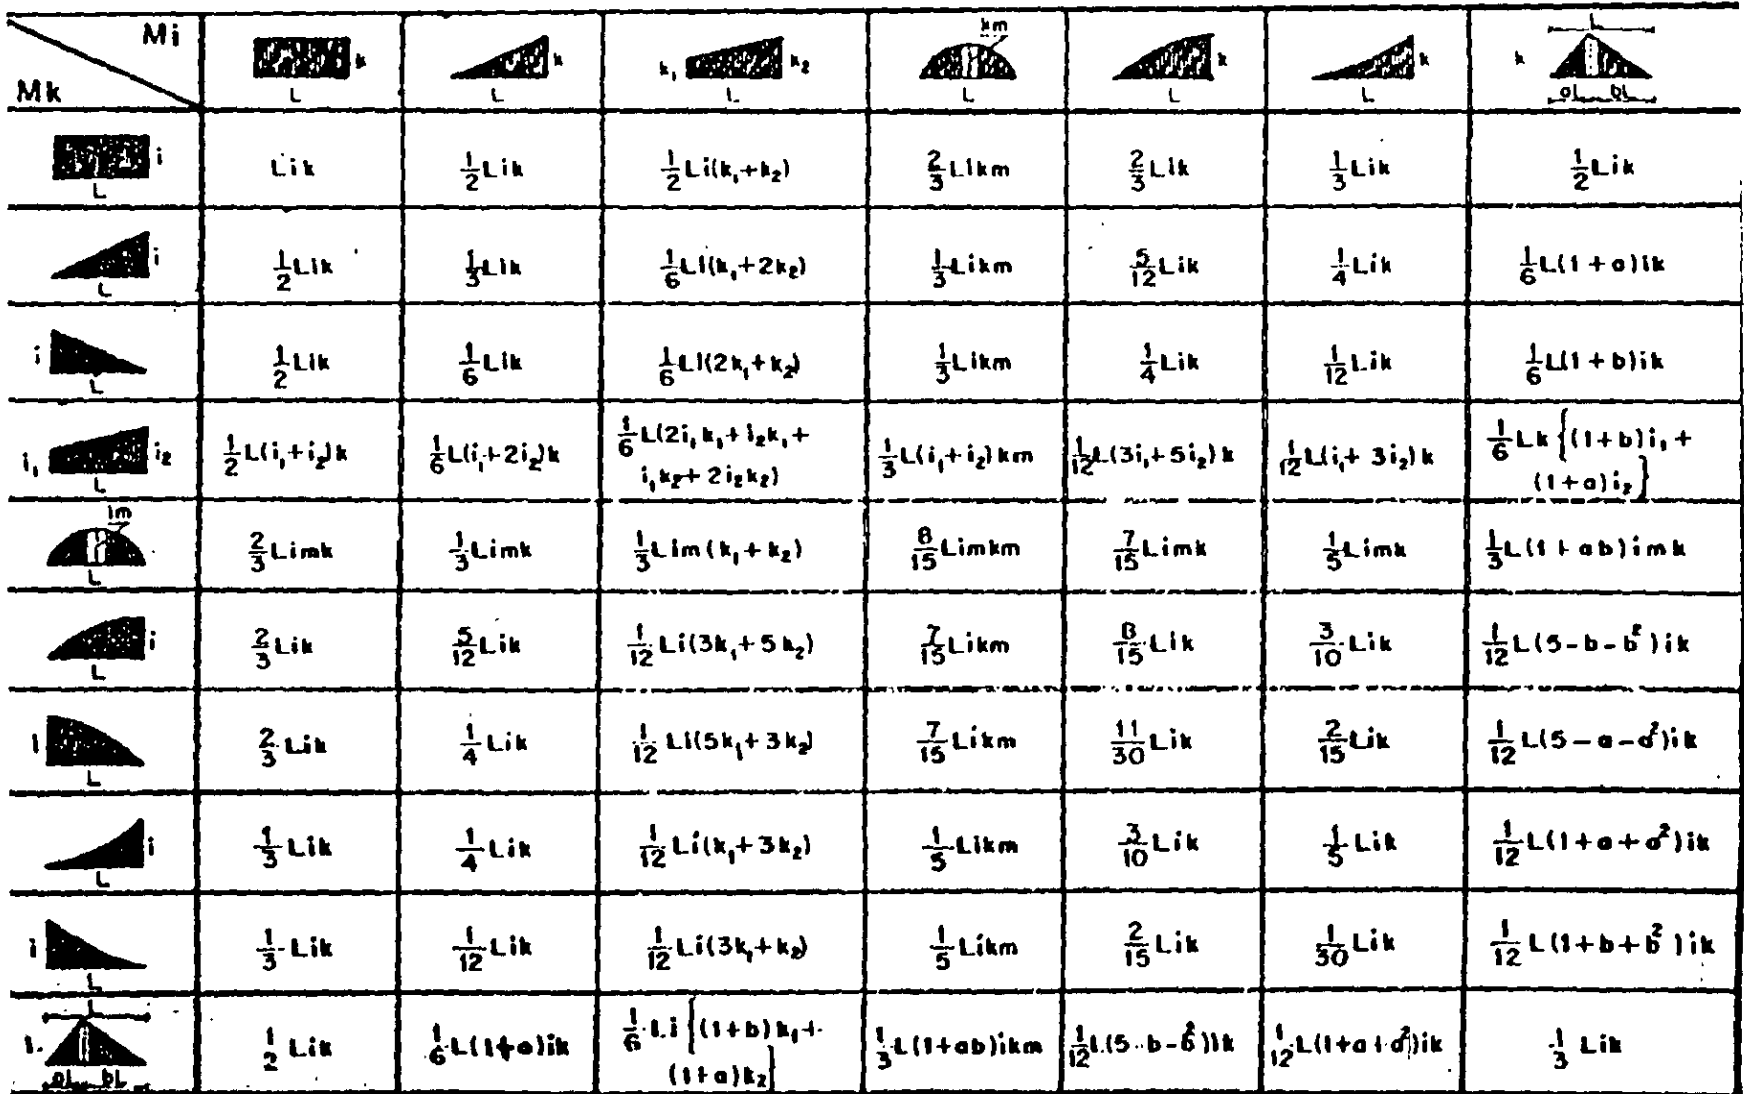 Mi
Mk
k
L
k
L
k₁ k₂
L
km
L
k
L
k
L
L
k
aL bL
i
L
Lik
1/2 Lik
1/2 Li(k₁+k₂)
2/3 Likm
2/3 Lik
1/3 Lik
1/2 Lik
i
L
1/2 Lik
1/3 Lik
1/6 Li(k₁+2k₂)
1/3 Likm
5/12 Lik
1/4 Lik
1/6 L(1+a)ik
i
L
1/2 Lik
1/6 Lik
1/6 Li(2k₁+k₂)
1/3 Likm
1/4 Lik
1/12 Lik
1/6 L(1+b)ik
i₁ i₂
L
1/2 L(i₁+i₂)k
1/6 L(i₁+2i₂)k
1/6 L(2i₁k₁+i₂k₁+
i₁k₂+2i₂k₂)
1/3 L(i₁+i₂)km
1/12 L(3i₁+5i₂)k
1/12 L(i₁+3i₂)k
1/6 Lk{(1+b)i₁+
(1+a)i₂}
im
L
2/3 Limk
1/3 Limk
1/3 Lim(k₁+k₂)
8/15 Limkm
7/15 Limk
1/5 Limk
1/3 L(1+ab)imk
i
L
2/3 Lik
5/12 Lik
1/12 Li(3k₁+5k₂)
7/15 Likm
8/15 Lik
3/10 Lik
1/12 L(5-b-b²)ik
i
L
2/3 Lik
1/4 Lik
1/12 Li(5k₁+3k₂)
7/15 Likm
11/30 Lik
2/15 Lik
1/12 L(5-a-a²)ik
i
L
1/3 Lik
1/4 Lik
1/12 Li(k₁+3k₂)
1/5 Likm
3/10 Lik
1/5 Lik
1/12 L(1+a+a²)ik
i
L
1/3 Lik
1/12 Lik
1/12 Li(3k₁+k₂)
1/5 Likm
2/15 Lik
1/30 Lik
1/12 L(1+b+b²)ik
L
i
aL bL
1/2 Lik
1/6 L(1+a)ik
1/6 Li{(1+b)k₁+
(1+a)k₂}
1/3 L(1+ab)ikm
1/12 L(5-b-b²)ik
1/12 L(1+a+a²)ik
1/3 Lik